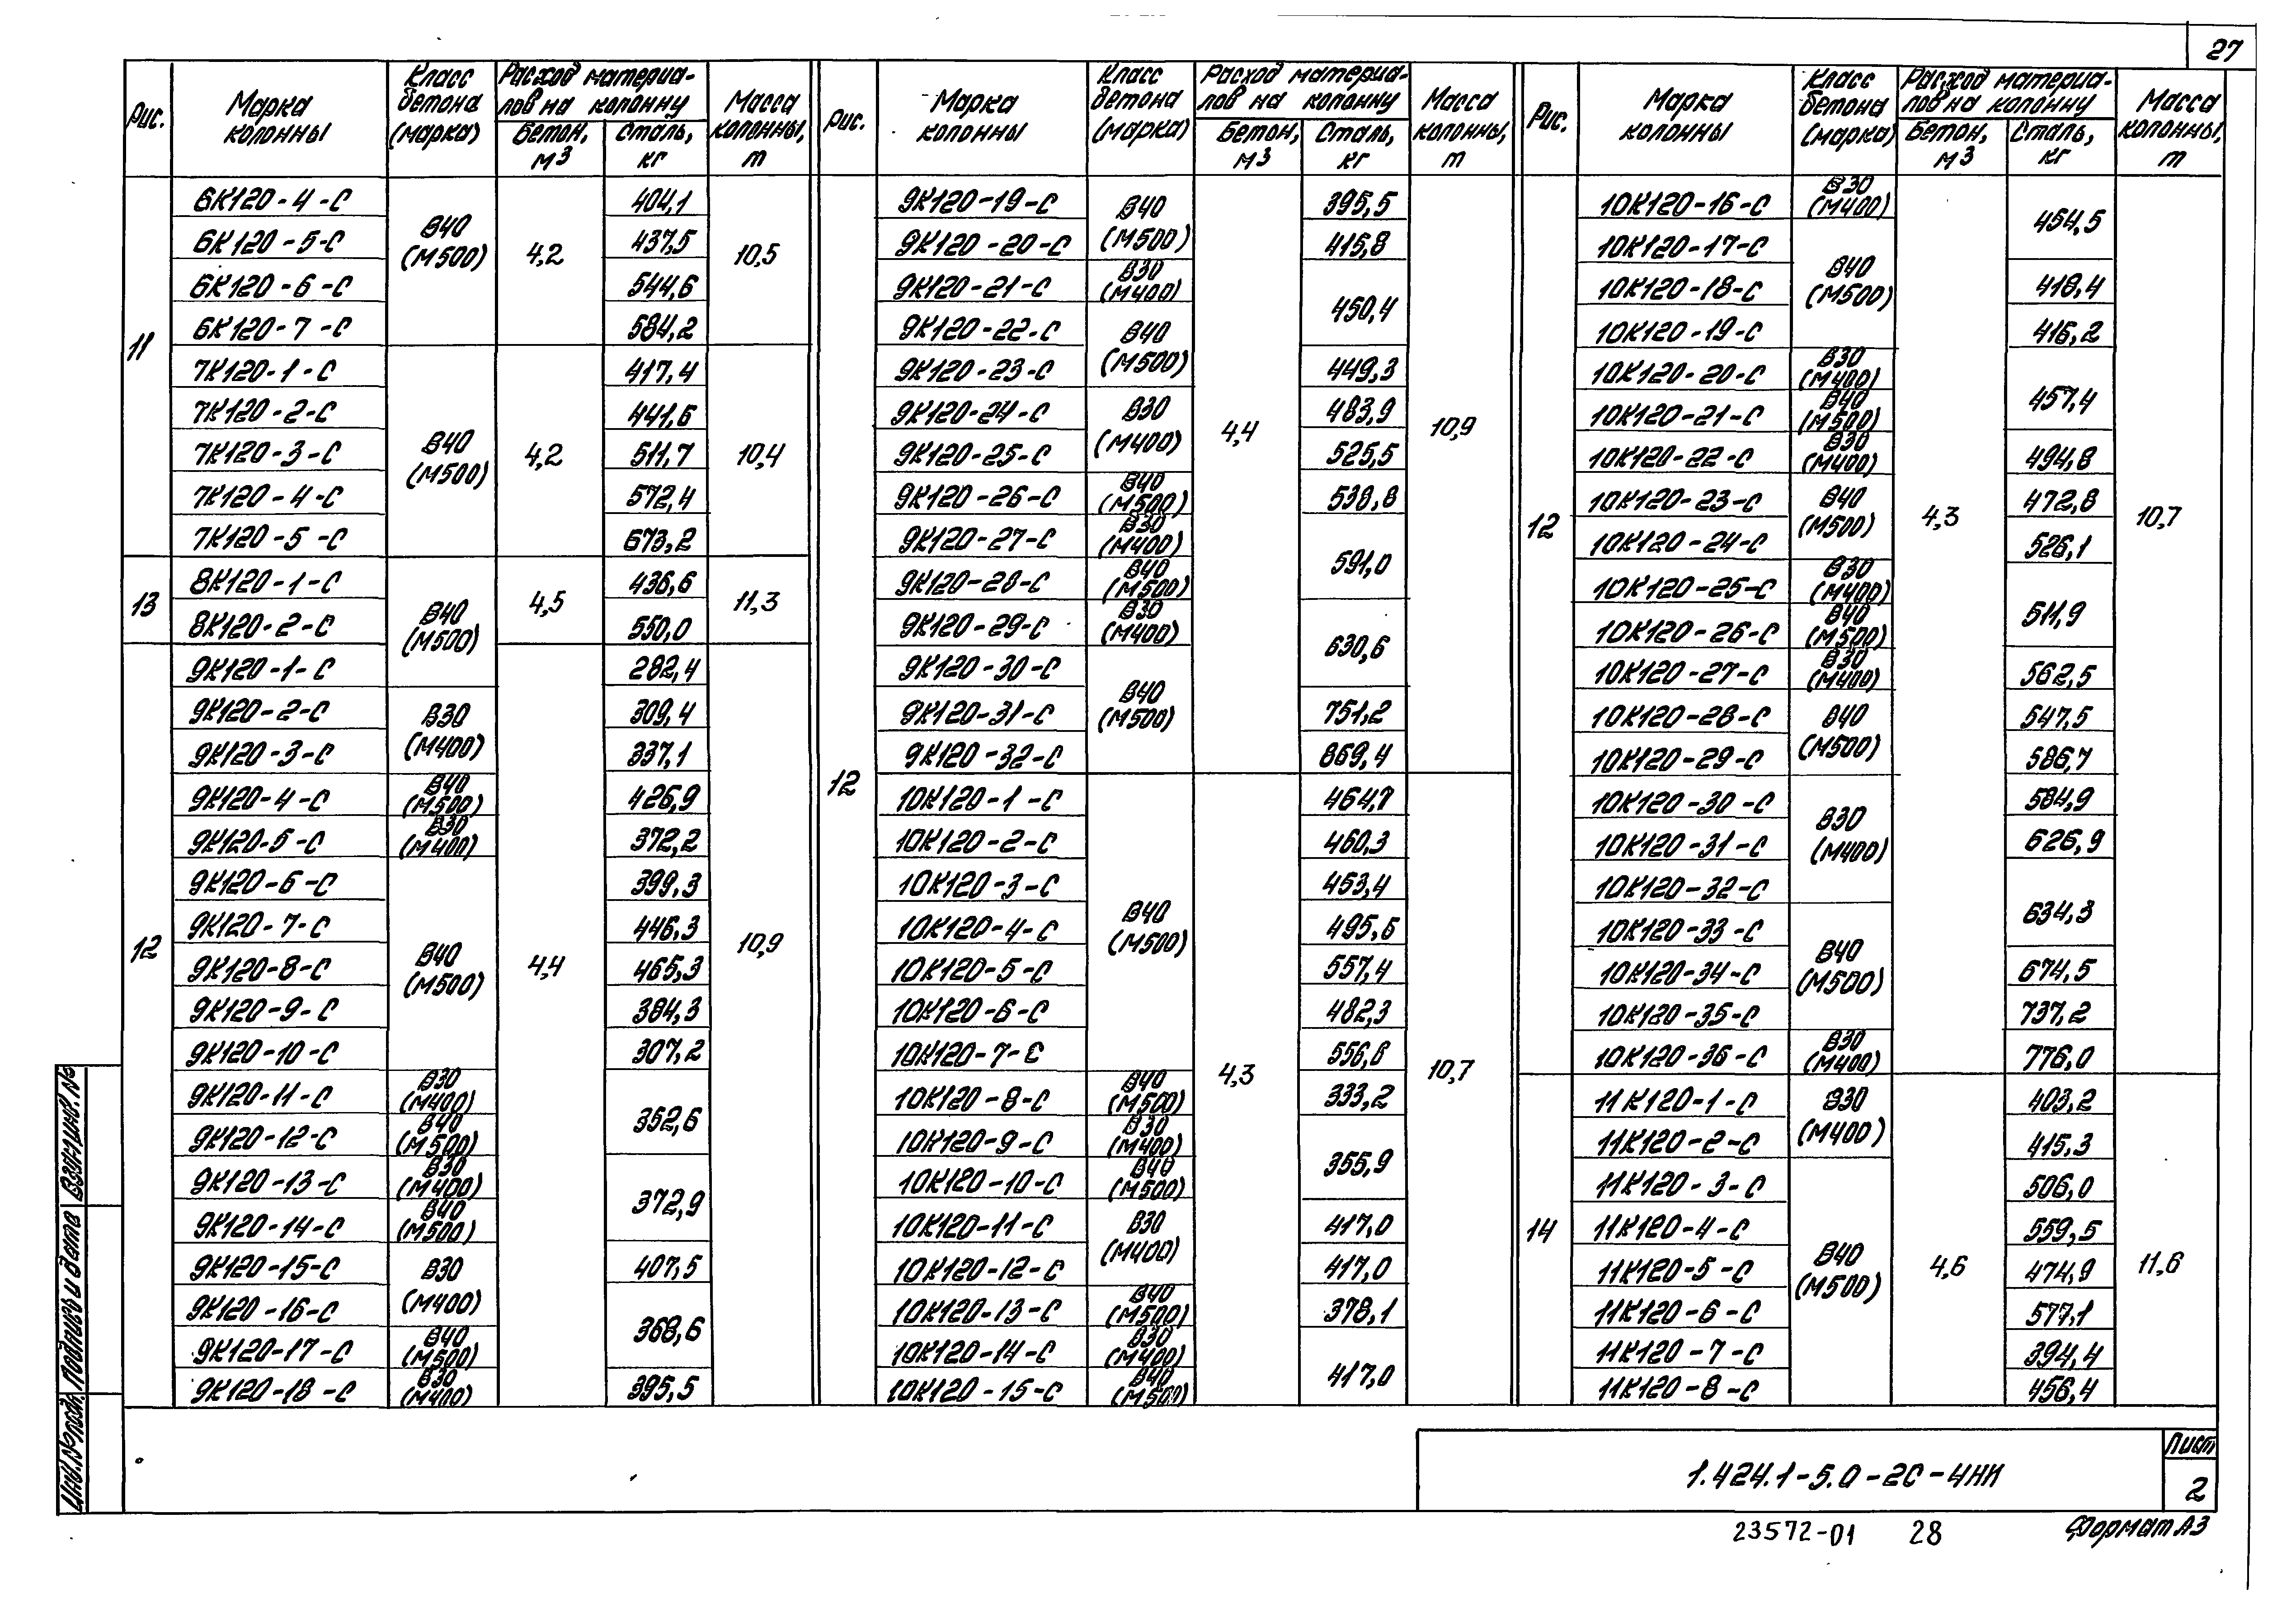 27
Рис.
Марка колонны
Класс бетона (марка)
Расход материалов на колонну
Бетон, м3
Сталь, кг
Масса колонны, т
11
6К120-4-С В40 (М500) 4,2 404,1 10,5
6К120-5-С 437,5
6К120-6-С 544,6
6К120-7-С 584,2
7К120-1-С В40 (М500) 4,2 417,4 10,4
7К120-2-С 441,6
7К120-3-С 511,7
7К120-4-С 572,4
7К120-5-С 673,2
13
8К120-1-С В40 (М500) 4,5 436,6 11,3
8К120-2-С 550,0
12
9К120-1-С 4,4 282,4 10,9
9К120-2-С В30 (М400) 309,4
9К120-3-С 337,1
9К120-4-С В40 (М500) 426,9
9К120-5-С В30 (М400) 372,2
9К120-6-С В40 (М500) 399,3
9К120-7-С 446,3
9К120-8-С 465,3
9К120-9-С 384,3
9К120-10-С 307,2
9К120-11-С В30 (М400) 352,6
9К120-12-С В40 (М500)
9К120-13-С В30 (М400) 372,9
9К120-14-С В40 (М500)
9К120-15-С В30 (М400) 407,5
9К120-16-С 368,6
9К120-17-С В40 (М500)
9К120-18-С В30 (М400) 395,5
Рис.
Марка колонны
Класс бетона (марка)
Расход материалов на колонну
Бетон, м3
Сталь, кг
Масса колонны, т
12
9К120-19-С В40 (М500) 4,4 395,5 10,9
9К120-20-С 415,8
9К120-21-С В30 (М400) 450,4
9К120-22-С В40 (М500)
9К120-23-С 449,3
9К120-24-С В30 (М400) 483,9
9К120-25-С 525,5
9К120-26-С В40 (М500) 538,8
9К120-27-С В30 (М400) 591,0
9К120-28-С В40 (М500)
9К120-29-С В30 (М400) 630,6
9К120-30-С В40 (М500)
9К120-31-С 751,2
9К120-32-С 869,4
10К120-1-С В40 (М500) 4,3 464,7 10,7
10К120-2-С 460,3
10К120-3-С 453,4
10К120-4-С 495,6
10К120-5-С 557,4
10К120-6-С 482,3
10К120-7-С 556,8
10К120-8-С В40 (М500) 333,2
10К120-9-С В30 (М400) 355,9
10К120-10-С В40 (М500)
10К120-11-С В30 (М400) 417,0
10К120-12-С 417,0
10К120-13-С В40 (М500) 378,1
10К120-14-С В30 (М400) 417,0
10К120-15-С В40 (М500)
Рис.
Марка колонны
Класс бетона (марка)
Расход материалов на колонну
Бетон, м3
Сталь, кг
Масса колонны, т
12
10К120-16-С В30 (М400) 4,3 454,5 10,7
10К120-17-С В40 (М500)
10К120-18-С 418,4
10К120-19-С 416,2
10К120-20-С В30 (М400) 457,4
10К120-21-С В40 (М500)
10К120-22-С В30 (М400) 494,8
10К120-23-С В40 (М500) 472,8
10К120-24-С 526,1
10К120-25-С В30 (М400) 511,9
10К120-26-С В40 (М500)
10К120-27-С В30 (М400) 562,5
10К120-28-С В40 (М500) 547,5
10К120-29-С 586,7
10К120-30-С В30 (М400) 584,9
10К120-31-С 626,9
10К120-32-С 634,3
10К120-33-С В40 (М500)
10К120-34-С 674,5
10К120-35-С 737,2
10К120-36-С В30 (М400) 776,0
14
11К120-1-С В30 (М400) 4,6 403,2 11,6
11К120-2-С 415,3
11К120-3-С В40 (М500) 506,0
11К120-4-С 559,5
11К120-5-С 474,9
11К120-6-С 577,1
11К120-7-С 394,4
11К120-8-С 456,4
Инв.№ подл. Подпись и дата Взам.инв.№
1.424.1-5.0-2С-4НИ
Лист
2
23572-01 28 Формат А3